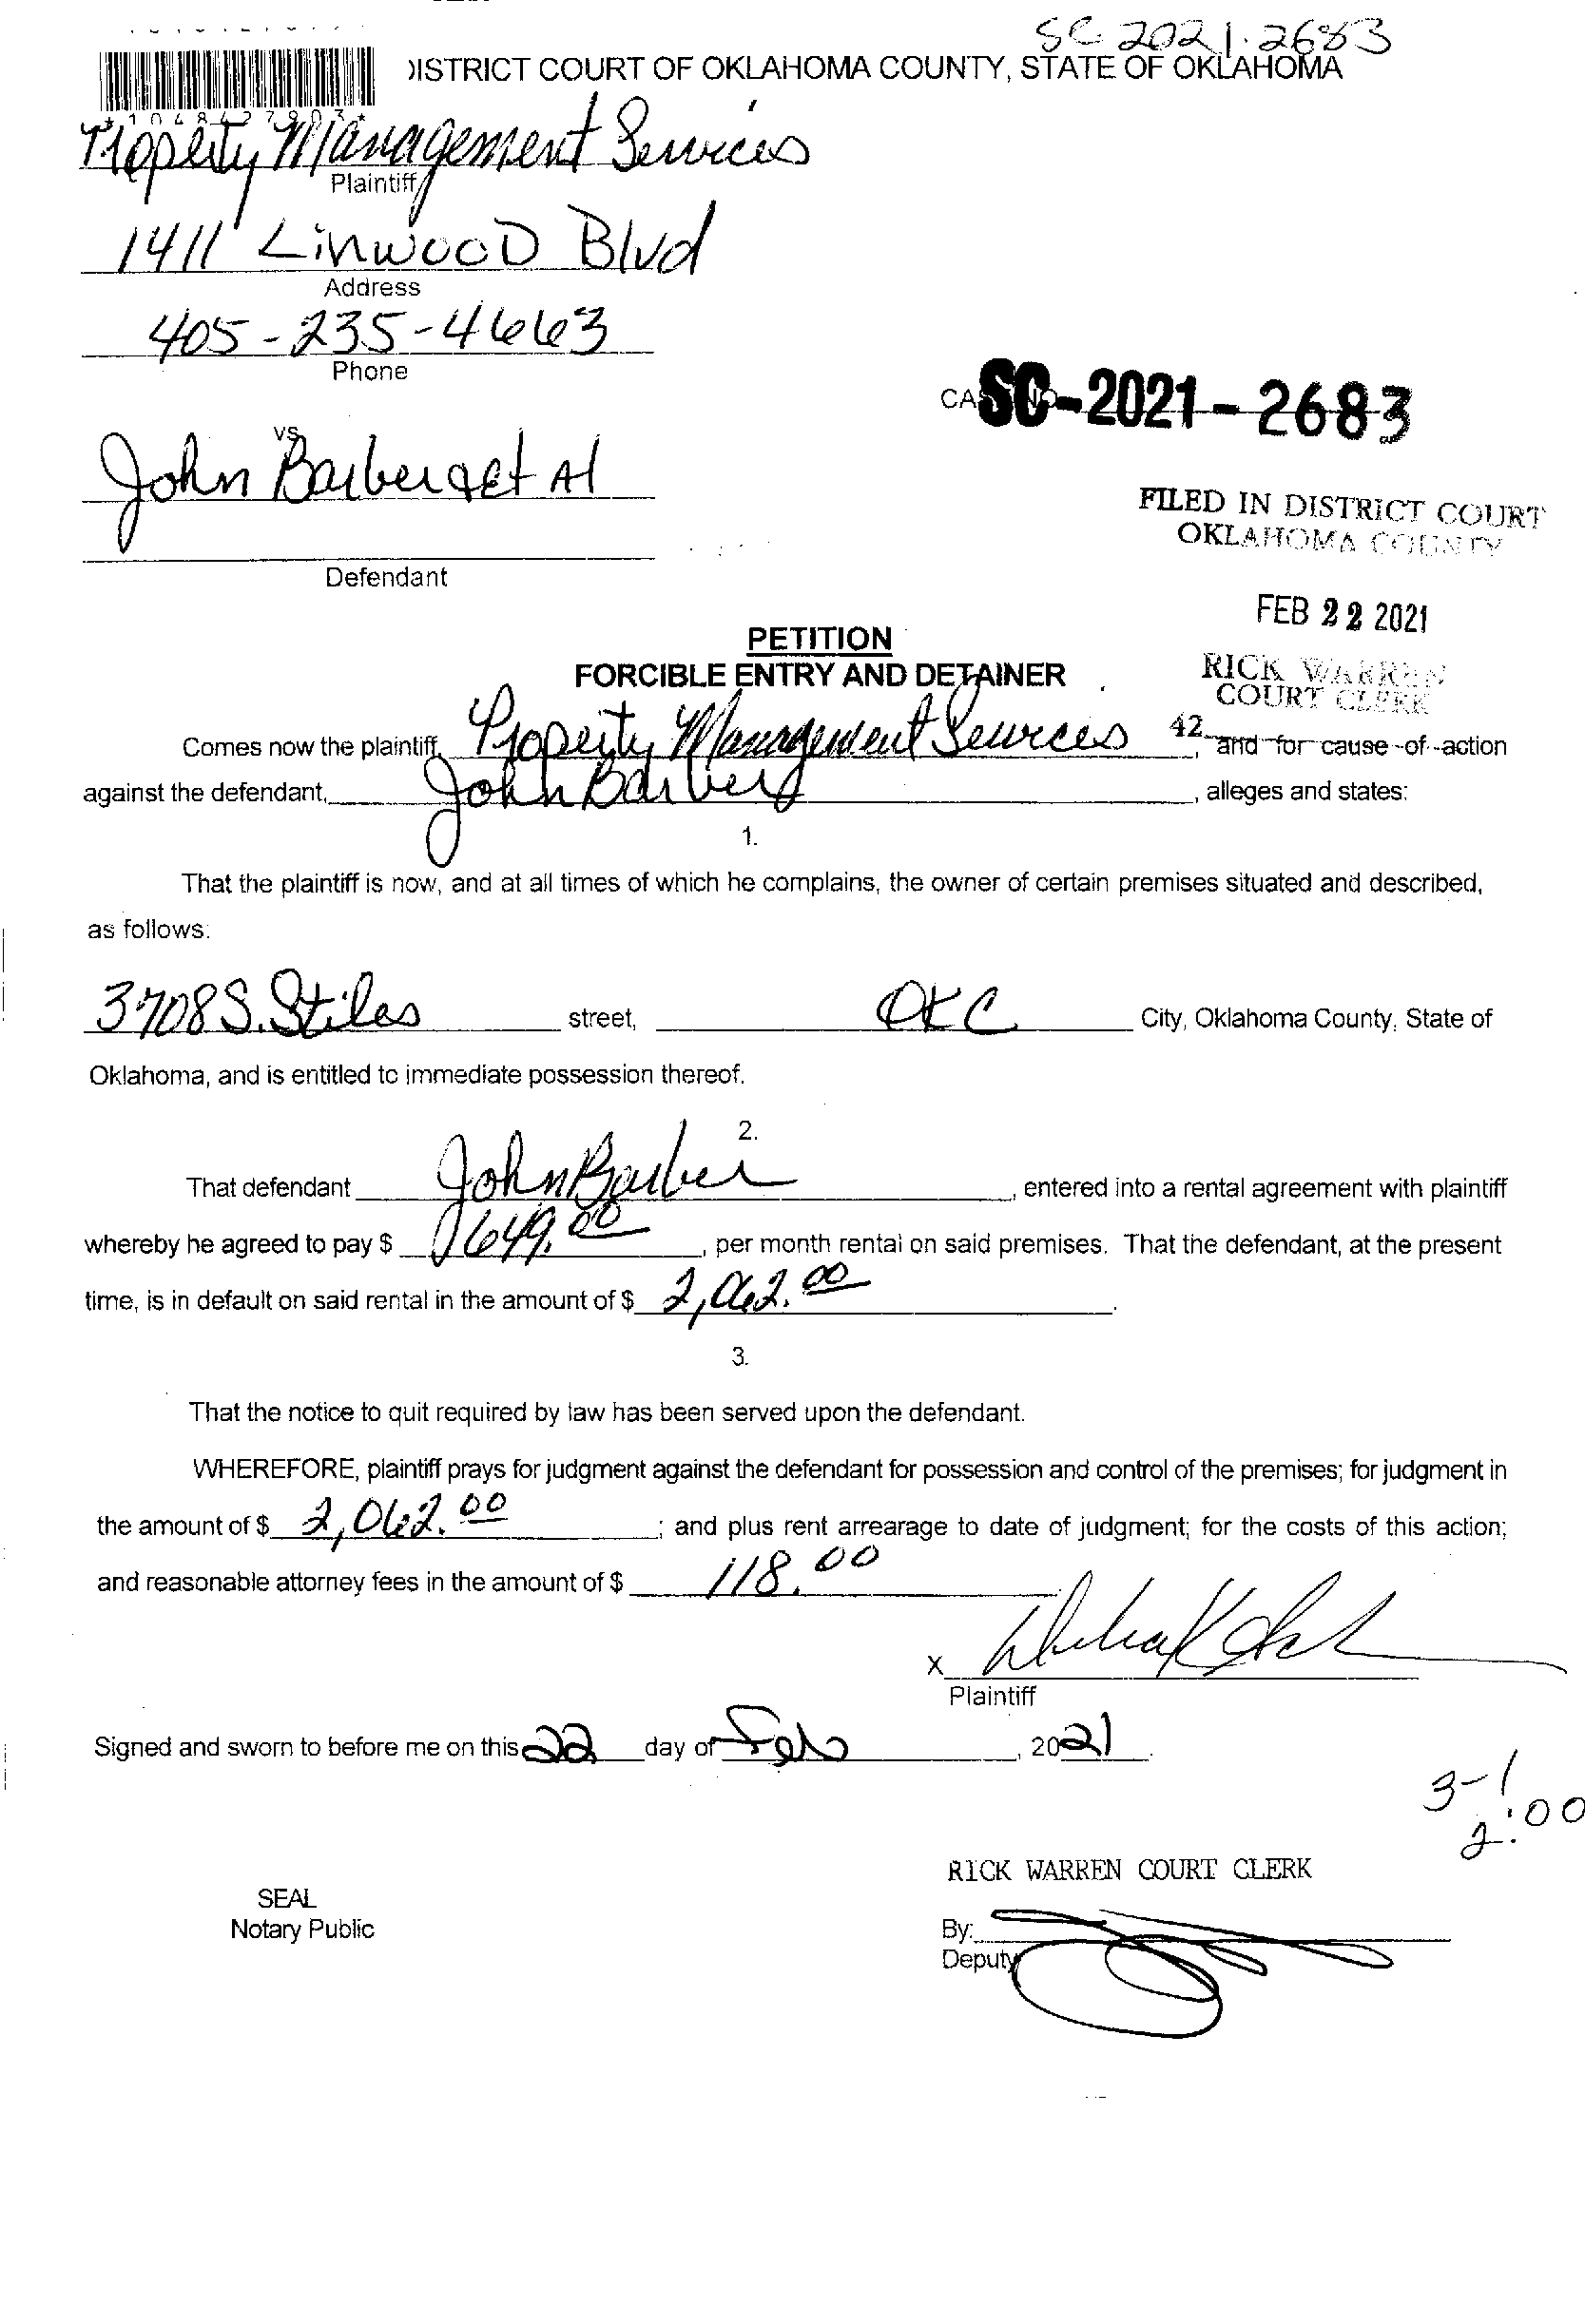 SC 2021.2683
DISTRICT COURT OF OKLAHOMA COUNTY, STATE OF OKLAHOMA
*1048427903*
Property Management Services
Plaintiff
1411 Linwood Blvd
Address
405-235-4663
Phone
CASE NO
SC-2021-2683
vs
John Barber et Al
FILED IN DISTRICT COURT
OKLAHOMA COUNTY
Defendant
FEB 22 2021
PETITION
RICK WARREN
COURT CLERK
FORCIBLE ENTRY AND DETAINER
42
Comes now the plaintiff, Property Management Services, and for cause of action
against the defendant, John Barber, alleges and states:
1.
That the plaintiff is now, and at all times of which he complains, the owner of certain premises situated and described,
as follows:
3708 S. Stiles street, OKC City, Oklahoma County, State of
Oklahoma, and is entitled to immediate possession thereof.
2.
That defendant John Barber, entered into a rental agreement with plaintiff
whereby he agreed to pay $ 649.00, per month rental on said premises. That the defendant, at the present
time, is in default on said rental in the amount of $ 2,062.00.
3.
That the notice to quit required by law has been served upon the defendant.
WHEREFORE, plaintiff prays for judgment against the defendant for possession and control of the premises; for judgment in
the amount of $ 2,062.00; and plus rent arrearage to date of judgment; for the costs of this action;
and reasonable attorney fees in the amount of $ 118.00
x
Plaintiff
Signed and sworn to before me on this 22 day of Feb, 2021.
3-1
2:00
RICK WARREN COURT CLERK
SEAL
Notary Public
By:
Deputy